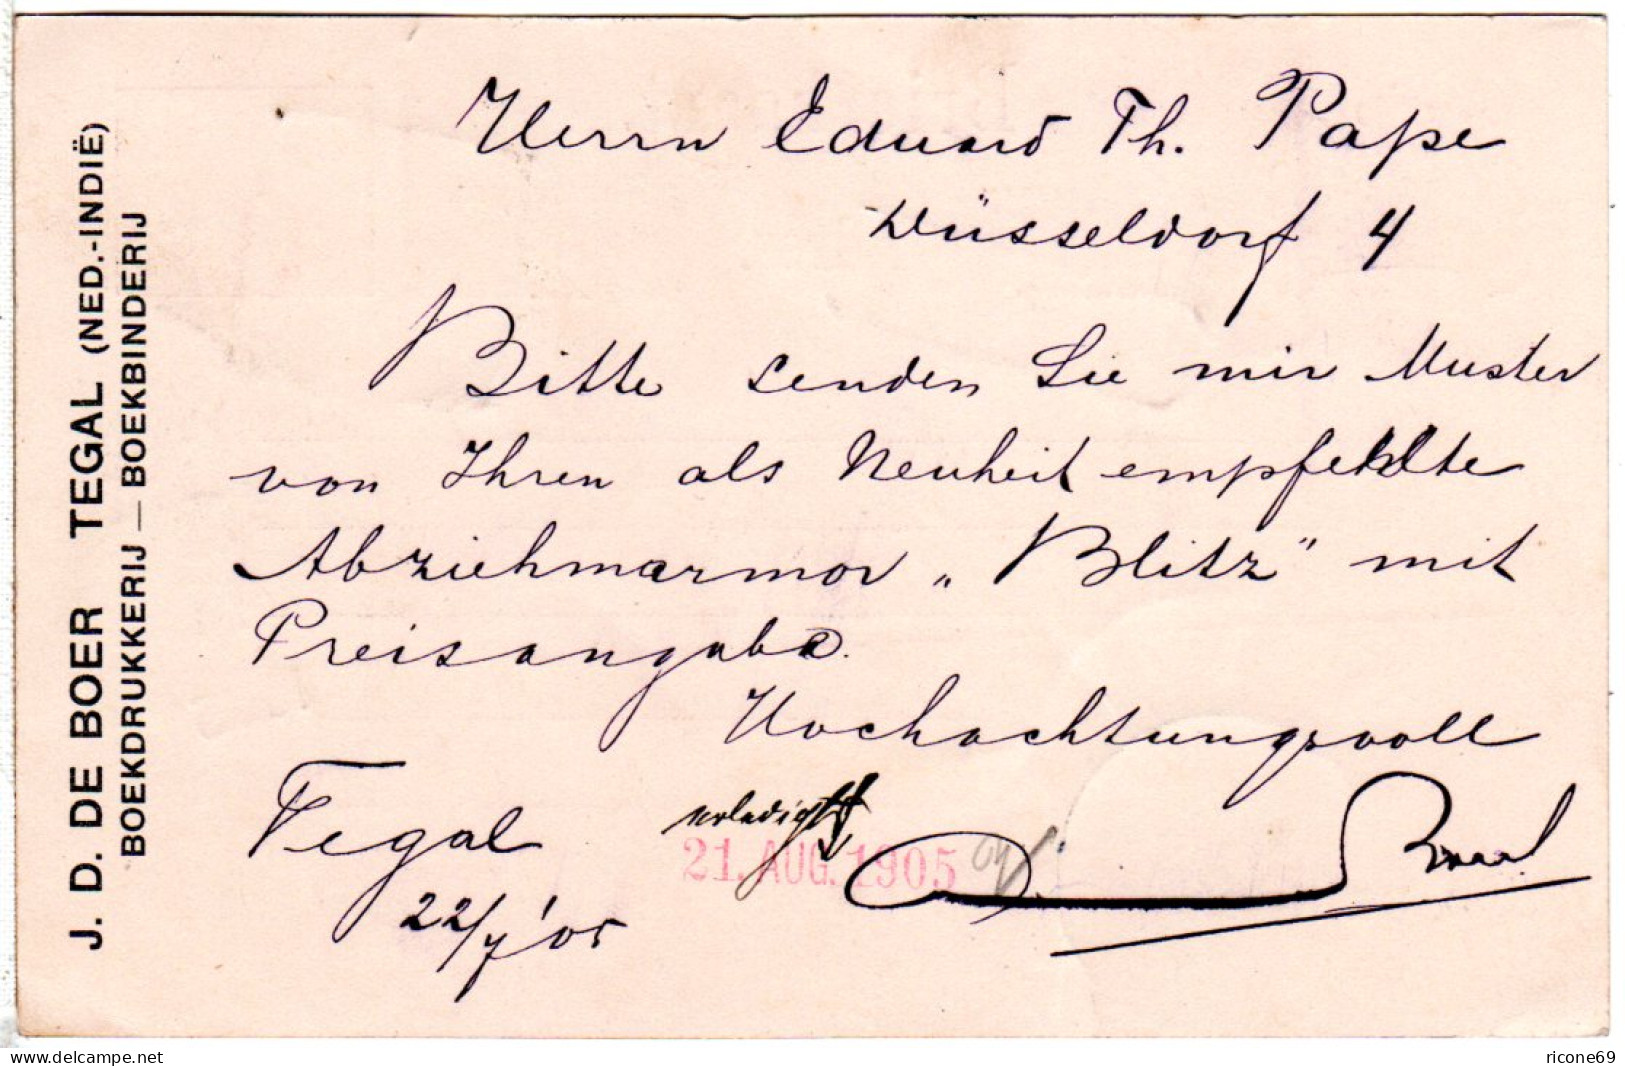 J. D. DE BOER TEGAL (NED.-INDIË)
BOEKDRUKKERIJ — BOEKBINDERIJ
Herrn Eduard Th. Pape
Düsseldorf 4
Bitte senden Sie mir Muster
von Ihren als Neuheit empfehlte
Abziehmarmor „Blitz" mit
Preisangabe.
Hochachtungsvoll
Tegal
22/7 '05
erledigt
21. AUG. 1905
delcampe.net
ricone69